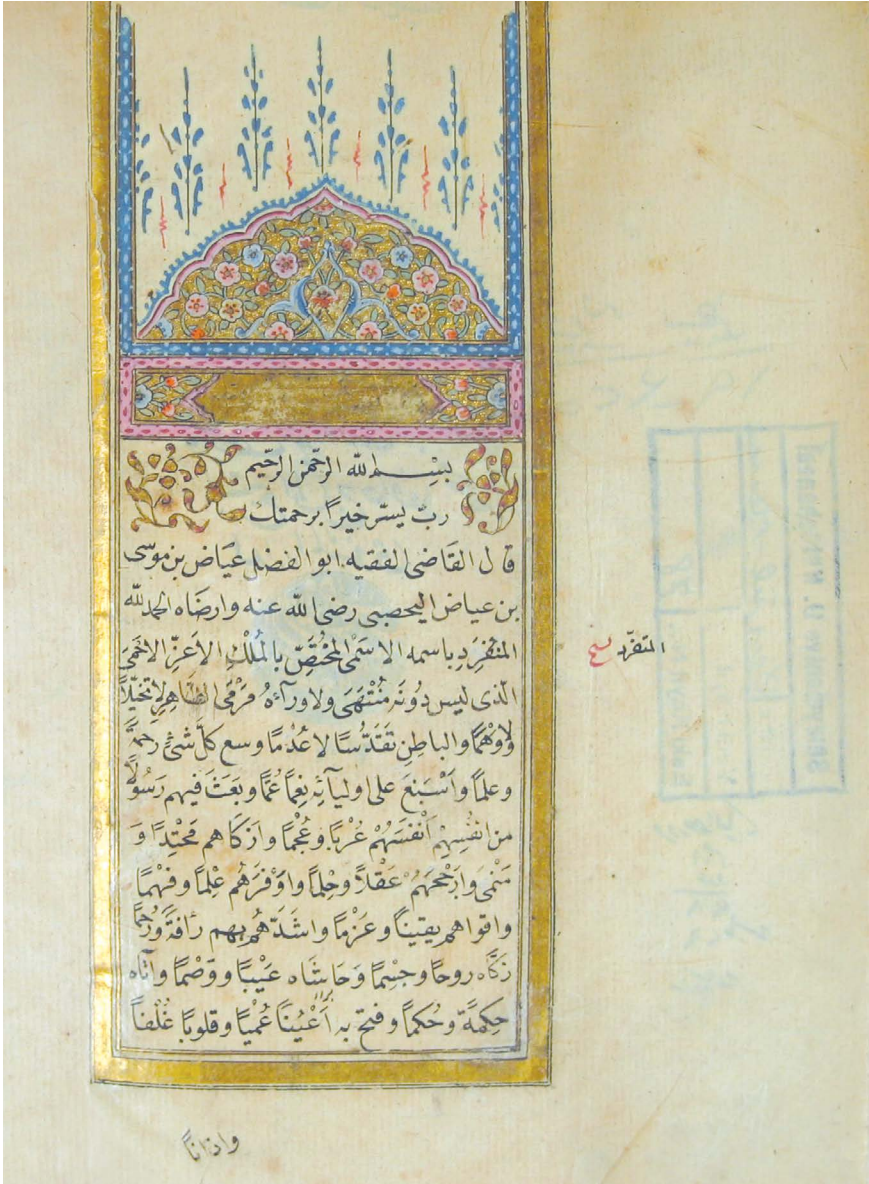 بِسْمِ اللّه الرحمن الرحيم
ربّ يسّر خيراً برحمتك
قال القاضى الفقيه ابو الفضل عيَاض بن موسى
بن عياض اليحصبى رضى اللّه عنه وارضاه الحمد للّه
المنْفرِدِ باسمه الاسَمْى المُختَصِّ بالمُلْكِ الاَعزِّ الاحْمَى
الّذى ليس دُونَه مُنْتَهَى ولا ورآءَهُ مَرْمَى الظاهِرِ لا تخيّلاً
وَلاوَهْمًا والباطِنِ تَقَدُّسًا لا عُدْمًا وسع كلَّ شئٍ رحمةً
وعلمًا واَسْبَغَ على اوليآئِه نِعَمًا عُمًّا وبعَثَ فيهم رَسُولاً
من انفُسِهِمْ اَنْفَسَهُمْ عُرْبًا وعُجْمًا وازكاهم مَحْتِدًا وَ
مَنْمَى وارْجَحَهُمْ عَقْلاً وحِلمًا واوْفَرَهُم عِلمًا وفهْمًا
واقواهم يقيناً وعَزْمًا واشدَّهُم بهم رأفةً ورُحْمًا
زكّاه روحًا وجسِمًا وَحَاشاه عَيْبًا ووَصْمًا وآتاه
حِكمَةً وحُكماً وفتح به اَعْيُنًا عُمْيًا وقلوبًا غُلْفاً
المتفرّد نسخ
واذانًا